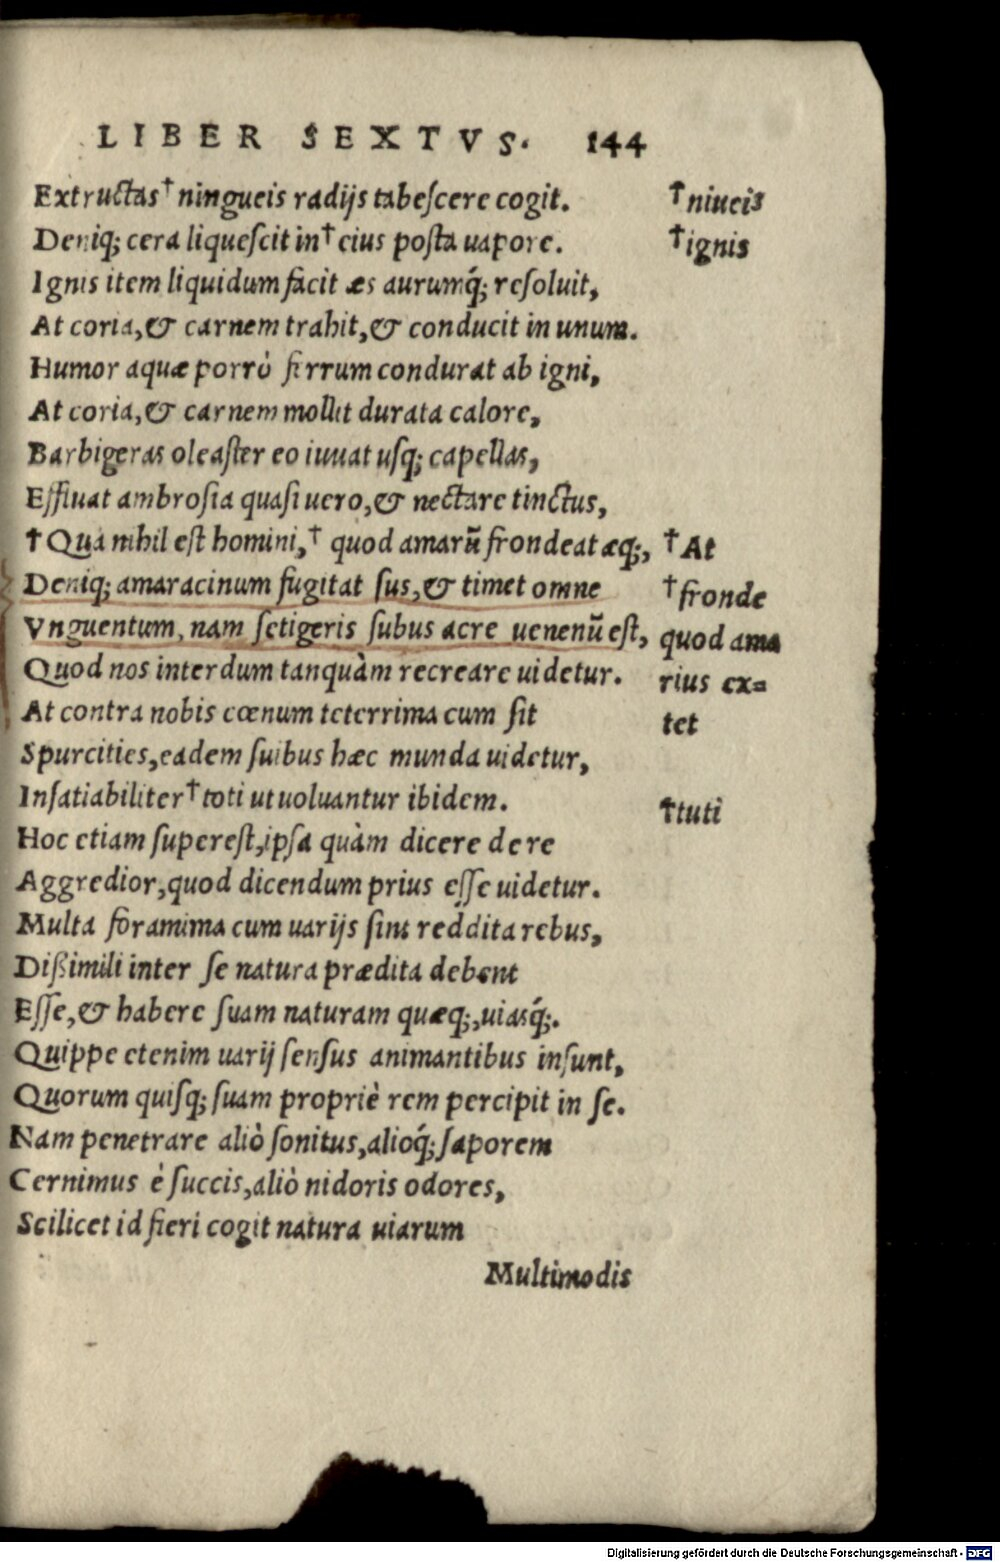 LIBER SEXTVS. 144
Extructas† ningueis radijs tabeſcere cogit. †niueis
Deniq; cera liqueſcit in† eius poſta uapore. †ignis
Ignis item liquidum facit æs aurumq́; reſoluit,
At coria, & carnem trahit, & conducit in unum.
Humor aquæ porrò firrum condurat ab igni,
At coria, & carnem mollit durata calore,
Barbigeras oleaſter eo iuuat uſq; capellas,
Effluat ambroſia quaſi uero, & nectare tinctus,
†Qua nihil eſt homini,† quod amarũ frondeat æq;, †At
Deniq; amaracinum fugitat ſus, & timet omne †fronde
Vnguentum, nam ſetigeris ſubus acre uenenũ eſt, quod ama
Quod nos interdum tanquàm recreare uidetur. rius ex=
At contra nobis cœnum teterrima cum ſit tet
Spurcities, eadem ſuibus hæc munda uidetur,
Inſatiabiliter† toti ut uoluantur ibidem. †tuti
Hoc etiam ſupereſt, ipſa quàm dicere de re
Aggredior, quod dicendum prius eſſe uidetur.
Multa foramima cum uarijs ſint reddita rebus,
Dißimili inter ſe natura prædita debent
Eſſe, & habere ſuam naturam quæq;, uiasq́;.
Quippe etenim uarij ſenſus animantibus inſunt,
Quorum quiſq; ſuam propriè rem percipit in ſe.
Nam penetrare aliò ſonitus, alioq́; ſaporem
Cernimus è ſuccis, aliò nidoris odores,
Scilicet id fieri cogit natura uiarum
Multimodis
Digitalisierung gefördert durch die Deutsche Forschungsgemeinschaft - DFG